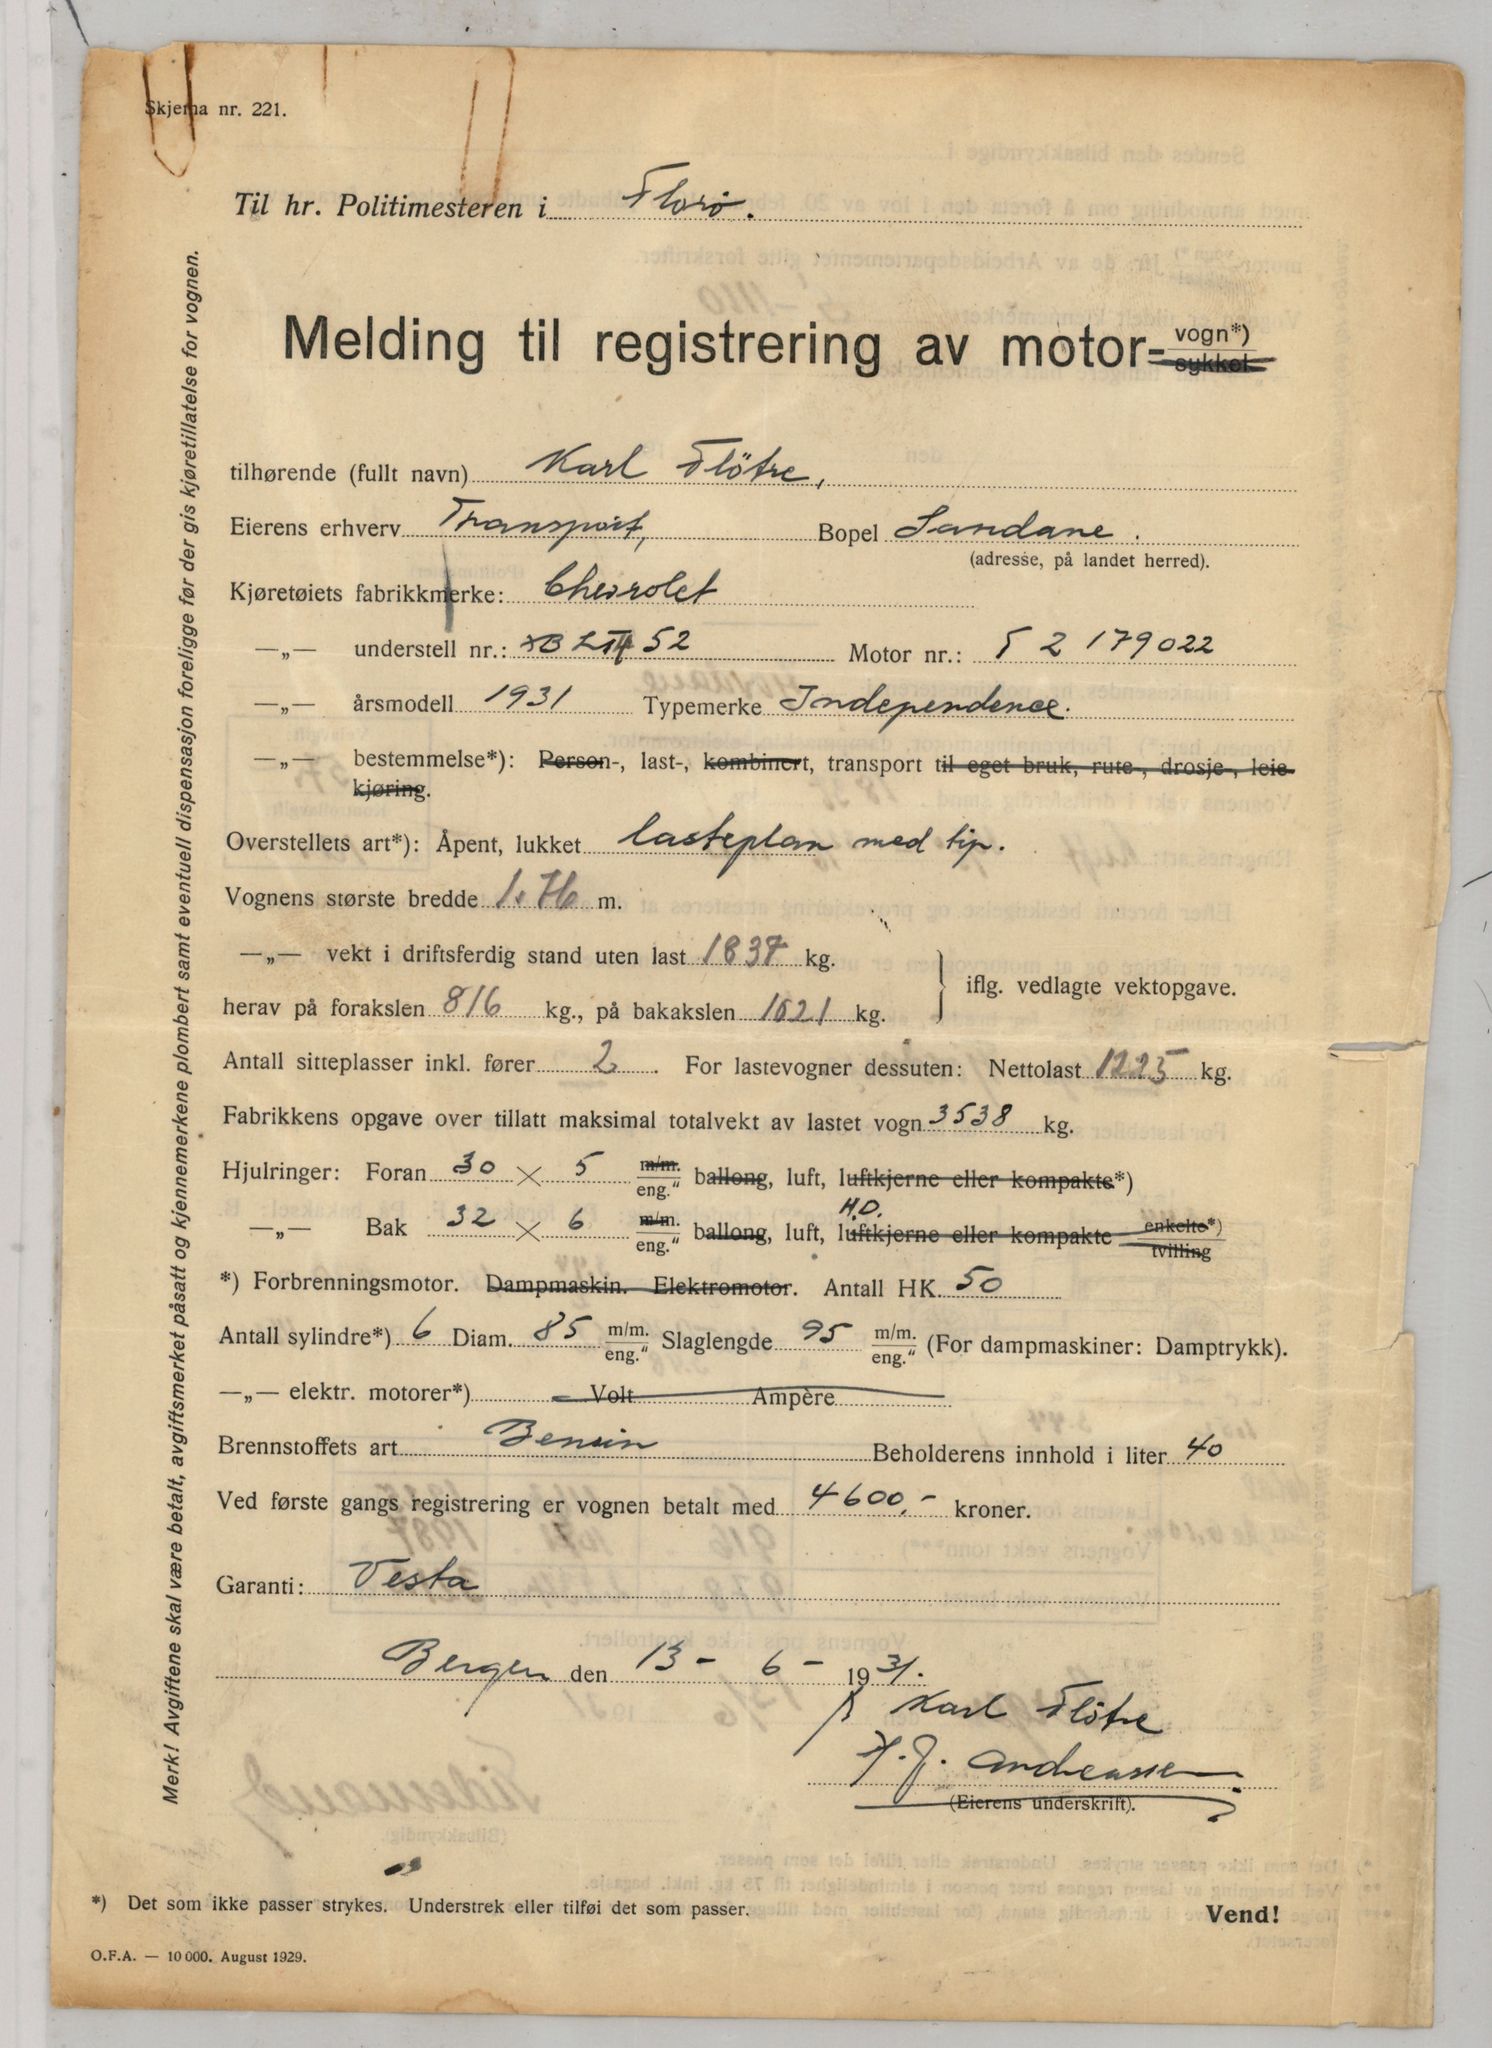 Skjema nr. 221.
Til hr. Politimesteren i Florø.
Melding til registrering av motor-vogn*)
sykkel.
tilhørende (fullt navn) Karl Flötre,
Eierens erhverv Transport, Bopel Sandane.
(adresse, på landet herred).
Kjøretøiets fabrikkmerke: Chevrolet
—„— understell nr.: 52 Motor nr.: T 2 179022
—„— årsmodell 1931 Typemerke Independence.
—„— bestemmelse*): Person-, last-, kombinert, transport til eget bruk, rute-, drosje-, leie-
kjøring.
Overstellets art*): Åpent, lukket lasteplan med tip.
Vognens største bredde 1.76 m.
—„— vekt i driftsferdig stand uten last 1837 kg.
herav på forakslen 816 kg., på bakakslen 1021 kg.
iflg. vedlagte vektopgave.
Antall sitteplasser inkl. fører 2. For lastevogner dessuten: Nettolast 1225 kg.
Fabrikkens opgave over tillatt maksimal totalvekt av lastet vogn 3538 kg.
Hjulringer: Foran 30 × 5 m/m. eng." ballong, luft, luftkjerne eller kompakte*)
H.D.
—„— Bak 32 × 6 m/m. eng." ballong, luft, luftkjerne eller kompakte enkelte*) tvilling
*) Forbrenningsmotor. Dampmaskin. Elektromotor. Antall HK. 50
Antall sylindre*) 6 Diam. 85 m/m. eng." Slaglengde 95 m/m. eng." (For dampmaskiner: Damptrykk).
—„— elektr. motorer*) Volt Ampère
Brennstoffets art Bensin Beholderens innhold i liter 40
Ved første gangs registrering er vognen betalt med 4600,- kroner.
Garanti: Vesta
Bergen den 13 - 6 - 1931.
Karl Flötre
H. J. Andreassen
(Eierens underskrift).
*) Det som ikke passer strykes. Understrek eller tilføi det som passer.
Vend!
O.F.A. — 10 000. August 1929.
Merk! Avgiftene skal være betalt, avgiftsmerket påsatt og kjennemerkene plombert samt eventuell dispensasjon foreligge før der gis kjøretillatelse for vognen.